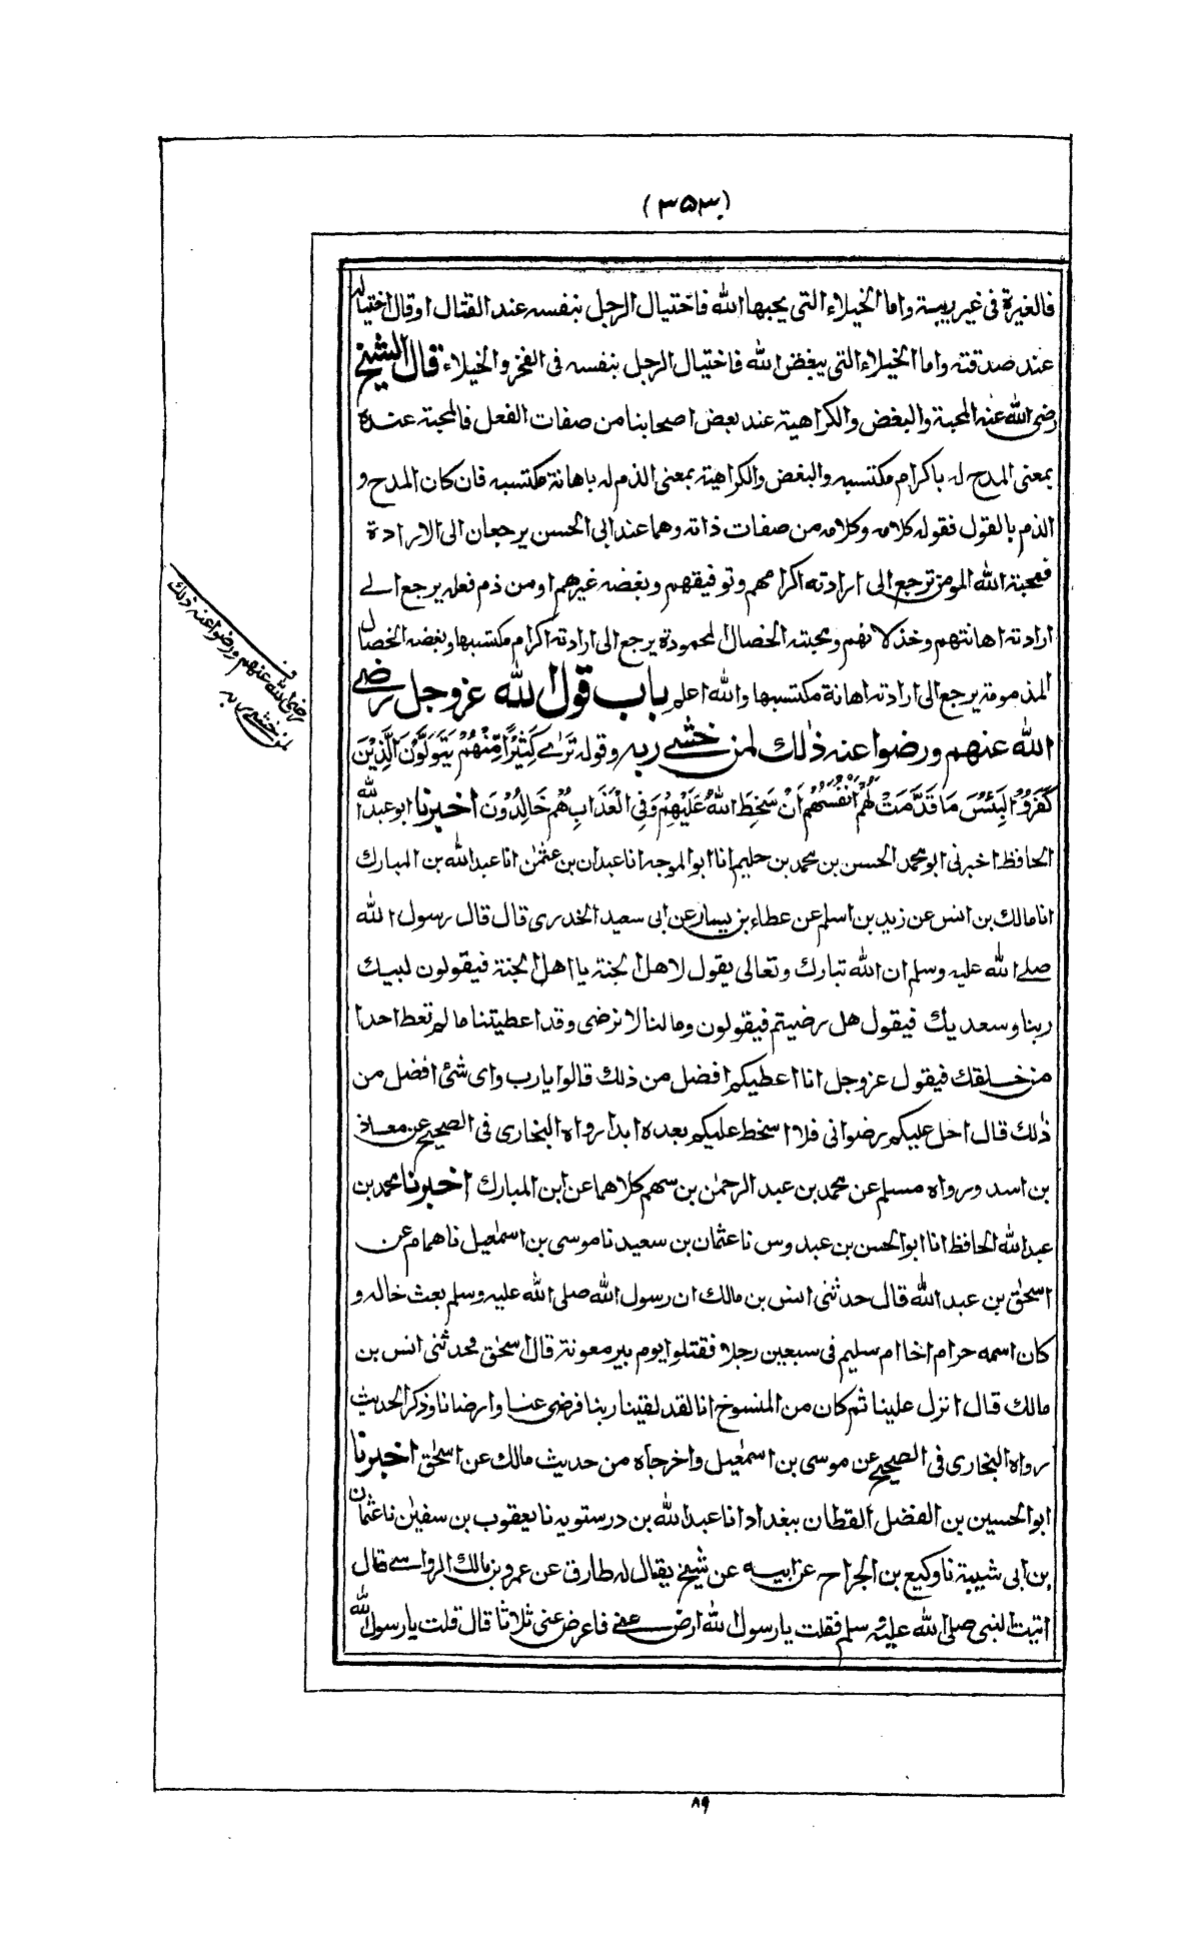 (٣٥٣)
فالغيرة فى غير ريبة واما الخيلاء التى يحبها الله فاختيال الرجل بنفسه عند القتال او قال اختياله
عند صدقته واما الخيلاء التى يبغض الله فاختيال الرجل بنفسه فى الفخر والخيلاء قال الشيخ
رضى الله عنه المحبة والبغض والكراهية عند بعض اصحابنا من صفات الفعل فالمحبة عنده
بمعنى المدح له باكرام مكتسبه والبغض والكراهية بمعنى الذم له باهانة مكتسبه فان كان المدح و
الذم بالقول فقوله كلامه وكلامه من صفات ذاته وهما عند ابى الحسن يرجعان الى الارادة
فمحبة الله المومنين ترجع الى ارادته اكرامهم وتوفيقهم وبغضه غيرهم او من ذم فعله يرجع الے
ارادته اهانتهم وخذلانهم ومحبته الخصال المحمودة يرجع الى ارادته اكرام مكتسبها وبغضه الخصال
المذمومة يرجع الى ارادته اهانة مكتسبها والله اعلم باب قول الله عزوجل رضے
الله عنهم ورضوا عنه ذٰلك لمن خشے ربه وقوله تَرٰے كَثِيْرًا مِّنْهُمْ يَتَوَلَّوْنَ الَّذِيْنَ
كَفَرُوْا لَبِئْسَ مَا قَدَّمَتْ لَهُمْ اَنْفُسُهُمْ اَنْ سَخِطَ اللهُ عَلَيْهِمْ وَفِى الْعَذَابِ هُمْ خَالِدُوْنَ اخبرنا ابو عبدالله
الحافظ اخبرنى ابو محمد الحسن بن محمد بن حليم انا ابو الموجه انا عبدان بن عثمٰن انا عبد الله بن المبارك
انا مالك بن انس عن زيد بن اسلم عن عطاء بن يسار عن ابى سعيد الخدرى قال قال رسول الله
صلے الله عليه وسلم ان الله تبارك وتعالى يقول لاهل الجنة يا اهل الجنة فيقولون لبيك
ربنا وسعديك فيقول هل رضيتم فيقولون وما لنا لا نرضى وقد اعطيتنا ما لم تعط احدا
من خلقك فيقول عزوجل انا اعطيكم افضل من ذلك قالوا يا رب واى شئ افضل من
ذٰلك قال احل عليكم رضوانى فلا اسخط عليكم بعده ابدا رواه البخارى فى الصحيح عن معاذ
بن اسد ورواه مسلم عن محمد بن عبد الرحمٰن بن سهم كلاهما عن ابن المبارك اخبرنا محمد بن
عبدالله الحافظ انا ابو الحسن بن عبدوس نا عثمان بن سعيد نا موسى بن اسمٰعيل نا همام عن
اسحٰق بن عبد الله قال حدثنى انس بن مالك ان رسول الله صلى الله عليه وسلم بعث خاله و
كان اسمه حرام اخا ام سليم فى سبعين رجلا فقتلوا يوم بير معونة قال اسحٰق فحدثنى انس بن
مالك قال انزل علينا ثم كان من المنسوخ انا لقد لقينا ربنا فرضى عنا وارضانا وذكر الحديث
رواه البخارى فى الصحيح عن موسى بن اسمٰعيل واخرجاه من حديث مالك عن اسحٰق اخبرنا
ابو الحسين بن الفضل القطان ببغداد انا عبدالله بن درستويه نا يعقوب بن سفيٰن نا عثمان
بن ابى شيبة نا وكيع بن الجراح عن ابيه عن شيخ يقال له طارق عن عمرو بن مالك الرواسے قال
اتيت النبى صلى الله عليه وسلم فقلت يا رسول الله ارض عنے فاعرض عنى ثلاثا قال قلت يا رسول الله
رضى الله عنهم ورضوا عنه ذلك
لمن خشے ربه
٨٩